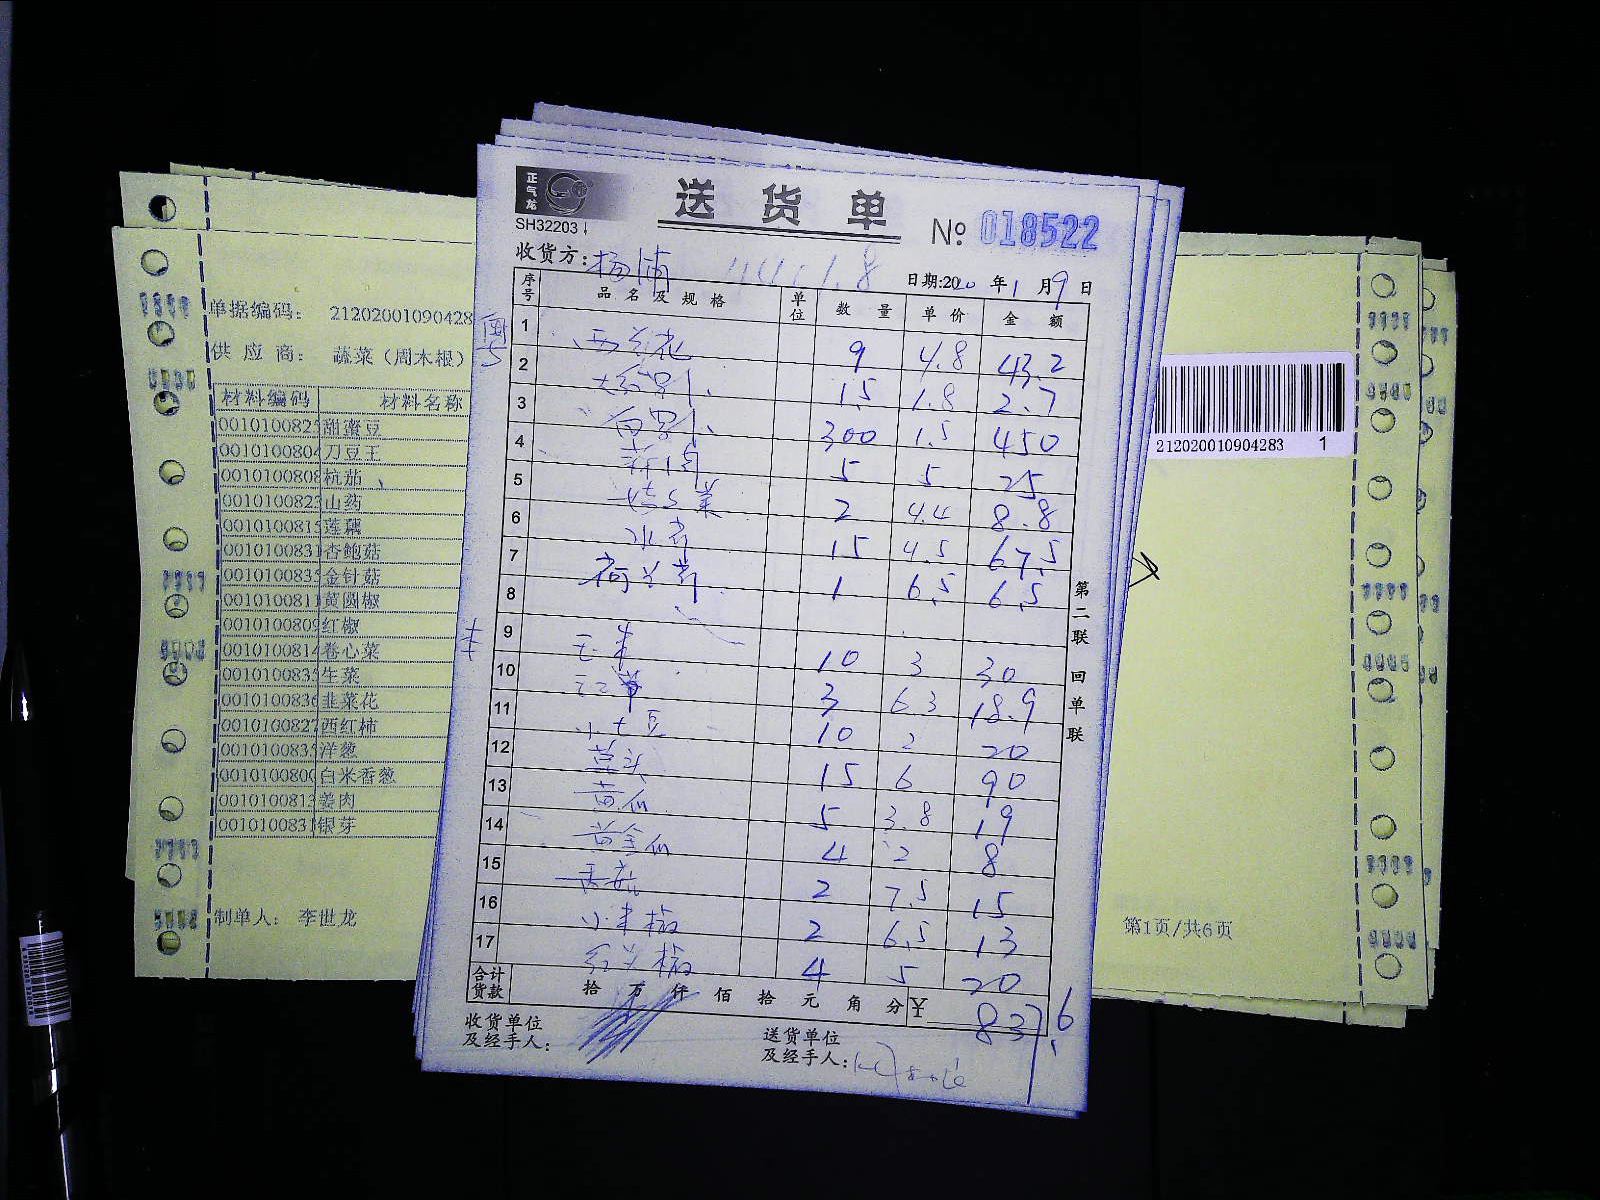 正气龙
送 货 单
SH32203
№ 018522
收货方: 杨浦
日期:2020 年 1 月 9 日
序号 品 名 及 规 格 单位 数 量 单 价 金 额
1 西兰花 9 4.8 43.2
2 1.5 1.8 2.7
3 300 1.5 450
4 5 5 25
5 2 4.4 8.8
6 15 4.5 67.5
7 1 6.5 6.5
8
9 玉米 10 3 30
10 3 6.3 18.9
11 小土豆 10 2 20
12 草头 15 6 90
13 黄瓜 5 3.8 19
14 黄金瓜 4 2 8
15 香菇 2 7.5 15
16 小米椒 2 6.5 13
17 4 5 20
合计货款 拾 万 仟 佰 拾 元 角 分 ¥ 837.6
收货单位
及经手人:
送货单位
及经手人:
第二联 回单联
单据编码: 21202001090428
供 应 商: 蔬菜（周木根）
材料编码 材料名称
001010082 甜蜜豆
0010100804 刀豆王
0010100808 杭茄
001010082 山药
001010081 莲藕
0010100831 杏鲍菇
001010083 金针菇
0010100811 黄圆椒
0010100809 红椒
0010100814 卷心菜
001010083 生菜
0010100836 韭菜花
0010100827 西红柿
001010083 洋葱
0010100800 白米香葱
0010100813 姜肉
0010100831 银芽
制单人: 李世龙
212020010904283 1
第1页/共6页